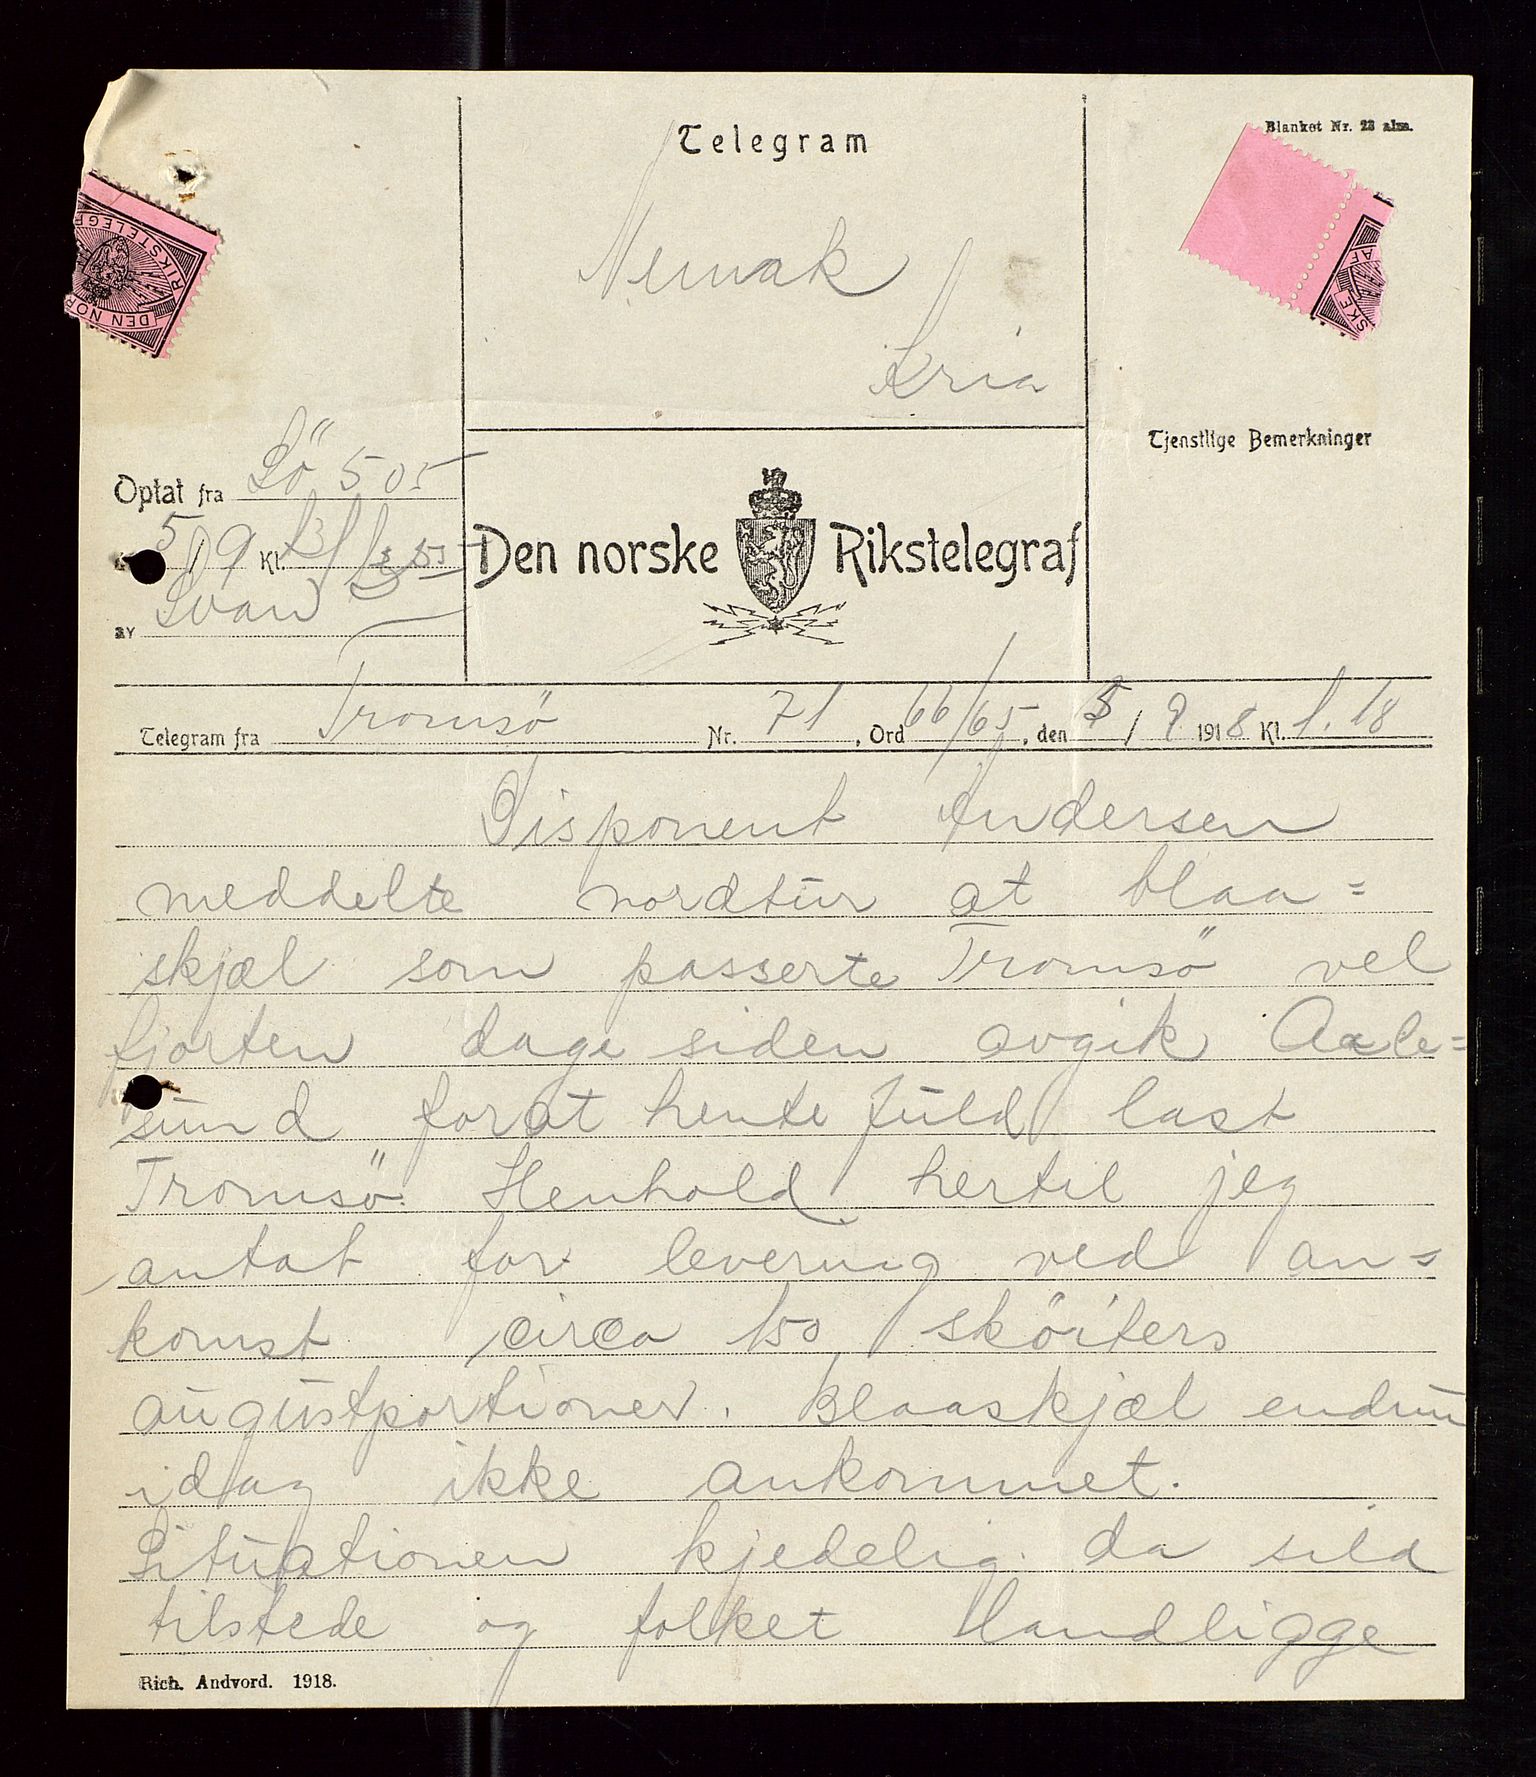 Telegram
Blanket Nr. 23 alm.
RIKSTELEGR
DEN NOR
SKE
Kria
Tjenstlige Bemerkninger
Optat fra Lö 505
5/9 Kl.
av Svan
Den norske Rikstelegraf
Telegram fra Tromsö Nr. 71, Ord 66/65, den 5/9 1918 Kl. 1.18
Disponent Andersen
meddelte nordtur at blaa=
skjæl som passerte Tromsö vel
fjorten dage siden avgik Aale=
sund forat hente fuld last
Tromsö. Henhold hertil jeg
antat for levering ved an=
komst circa 150 sköiters
augustportioner. Blaaskjæl endnu
idag ikke ankommet.
Situationen kjedelig da sild
tilstede og folket landligge
Rich. Andvord. 1918.